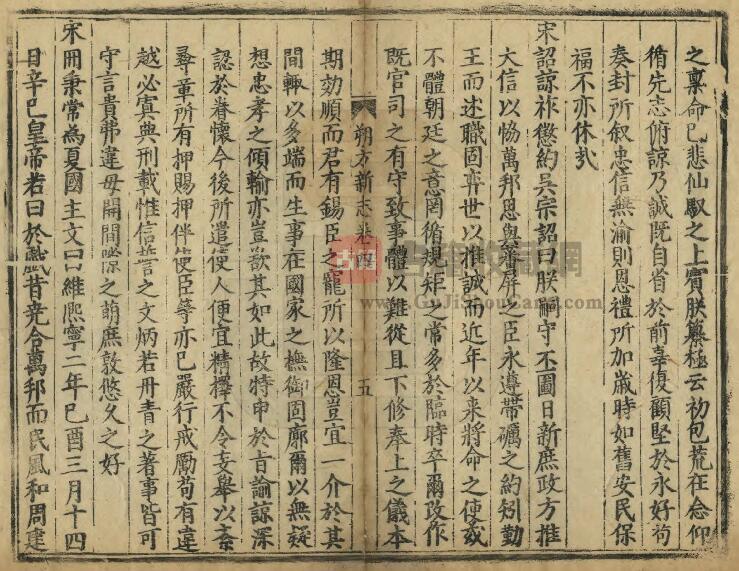 之稟命已悲仙馭之上賓朕纂極云初包荒在念仰
循先志俯諒乃誠既自省於前辜復顧堅於永好苟
奏封所叙忠信無渝則恩禮所加歲時如舊安民保
福不亦休㢤
宋詔諒祚懲約吳宗詔曰朕嗣守丕圖日新庶政方推
大信以恊萬邦思與藩屏之臣永遵帶礪之約矧勤
王而述職固弈世以推誠而近年以来將命之使或
不體朝廷之意罔循規矩之常多於臨時卒爾改作
既官司之有守致事體以難從且下修奉上之儀本
朔方新志卷四
五
期効順而君有錫臣之寵所以隆恩豈宜一介於其
間輙以多端而生事在國家之撫御固廓爾以無疑
想忠孝之傾輸亦豈欲其如此故特申於旨諭諒深
認於眷懷今後所遣使人便宜精擇不令妄舉以紊
尋章所有押賜押伴使臣等亦巳嚴行戒勵苟有違
越必寘典刑載惟信誓之文炳若丹青之著事皆可
守言貴弗違毋開間隙之萌庶敦悠久之好
宋冊秉常為夏國主文曰維熙寧二年巳酉三月十四
日辛巳皇帝若曰於戲昔堯合萬邦而民風和周建
古籍收藏网
www.GuJiShouCang.com